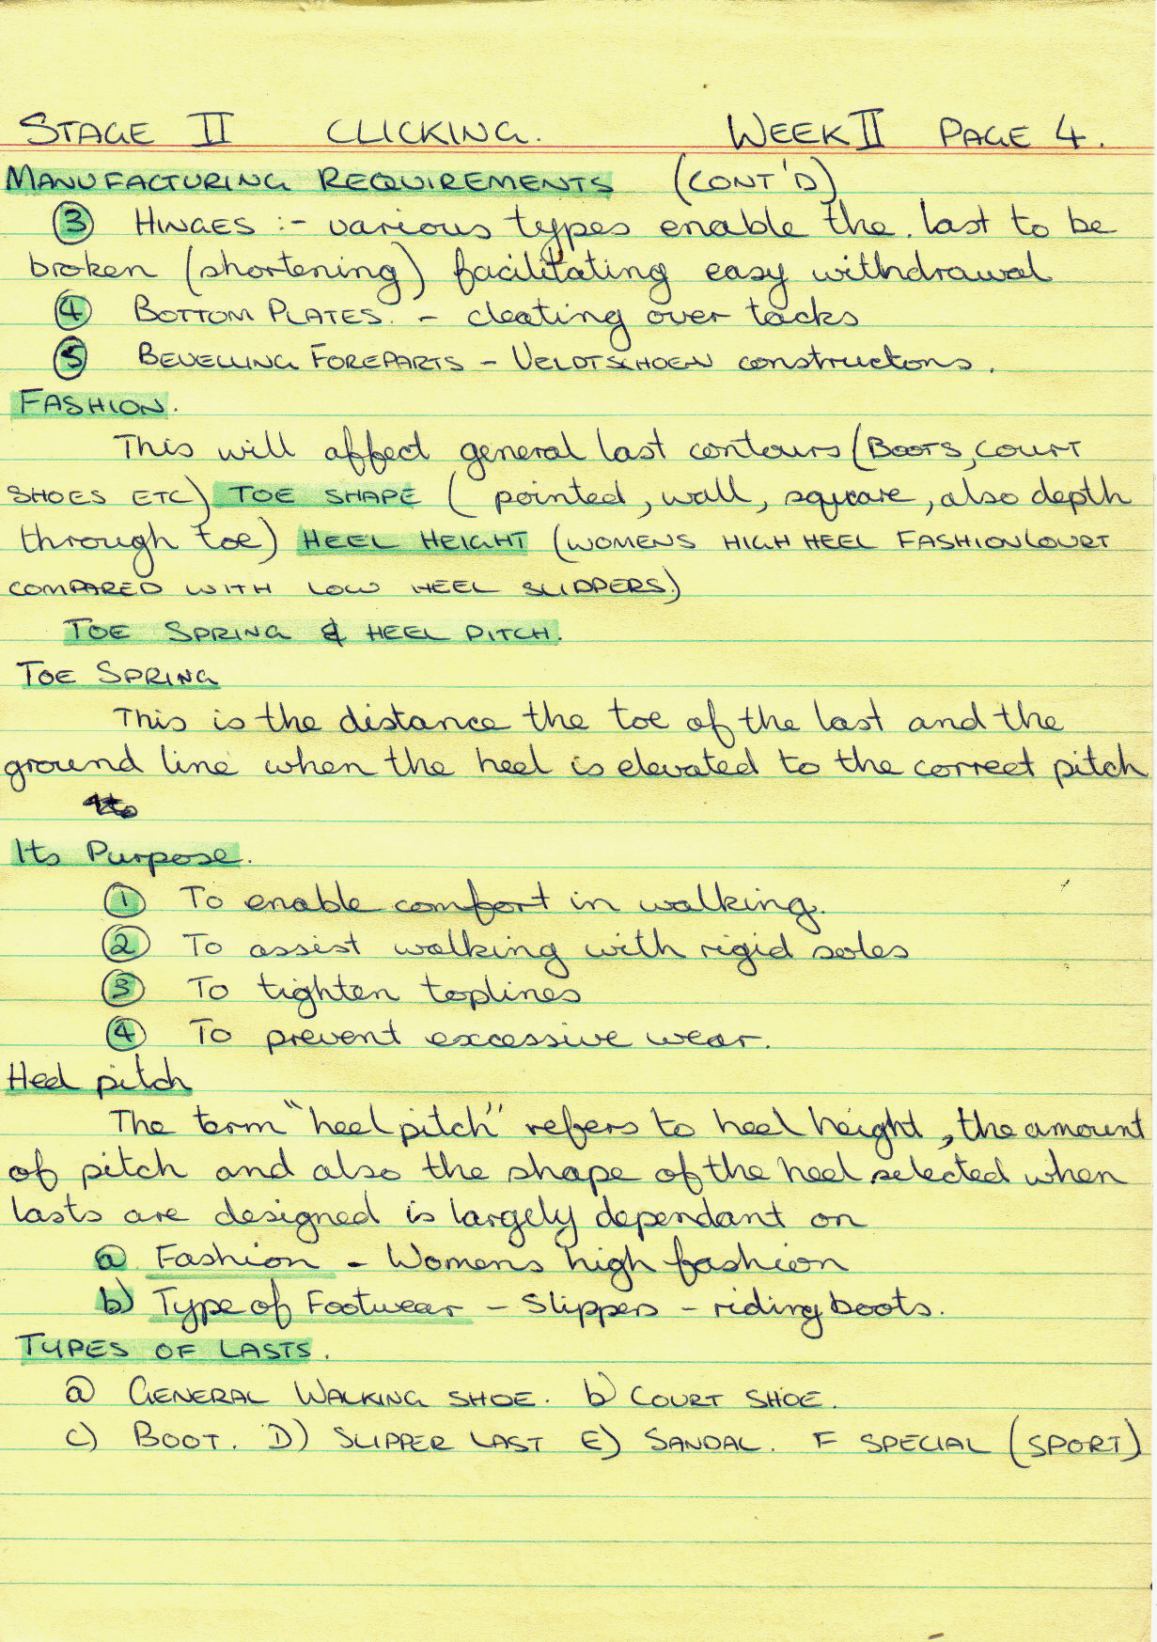 STAGE II CLICKING. WEEK II PAGE 4.
MANUFACTURING REQUIREMENTS (CONT'D)
③ HINGES :- various types enable the. last to be
broken (shortening) facilitating easy withdrawal
④ BOTTOM PLATES. - cleating over tacks
⑤ BEVELLING FOREPARTS - VELDTSCHOEN constructons.
FASHION.
This will affect general last contours (BOOTS, COURT
SHOES ETC) TOE SHAPE ( pointed, wall, square, also depth
through toe) HEEL HEIGHT (WOMENS HIGH HEEL FASHION COURT
COMPARED WITH LOW HEEL SLIPPERS.)
TOE SPRING & HEEL PITCH.
TOE SPRING
This is the distance the toe of the last and the
ground line when the heel is elevated to the correct pitch
Its Purpose.
① To enable comfort in walking.
② To assist walking with rigid soles
③ To tighten toplines
④ To prevent excessive wear.
Heel pitch
The term "heel pitch" refers to heel height, the amount
of pitch and also the shape of the heel selected when
lasts are designed is largely dependant on
a) Fashion - Womens high fashion
b) Type of Footwear - Slippers - riding boots.
TYPES OF LASTS.
a) GENERAL WALKING SHOE. b) COURT SHOE.
C) BOOT. D) SLIPPER LAST E) SANDAL. F SPECIAL (SPORT)